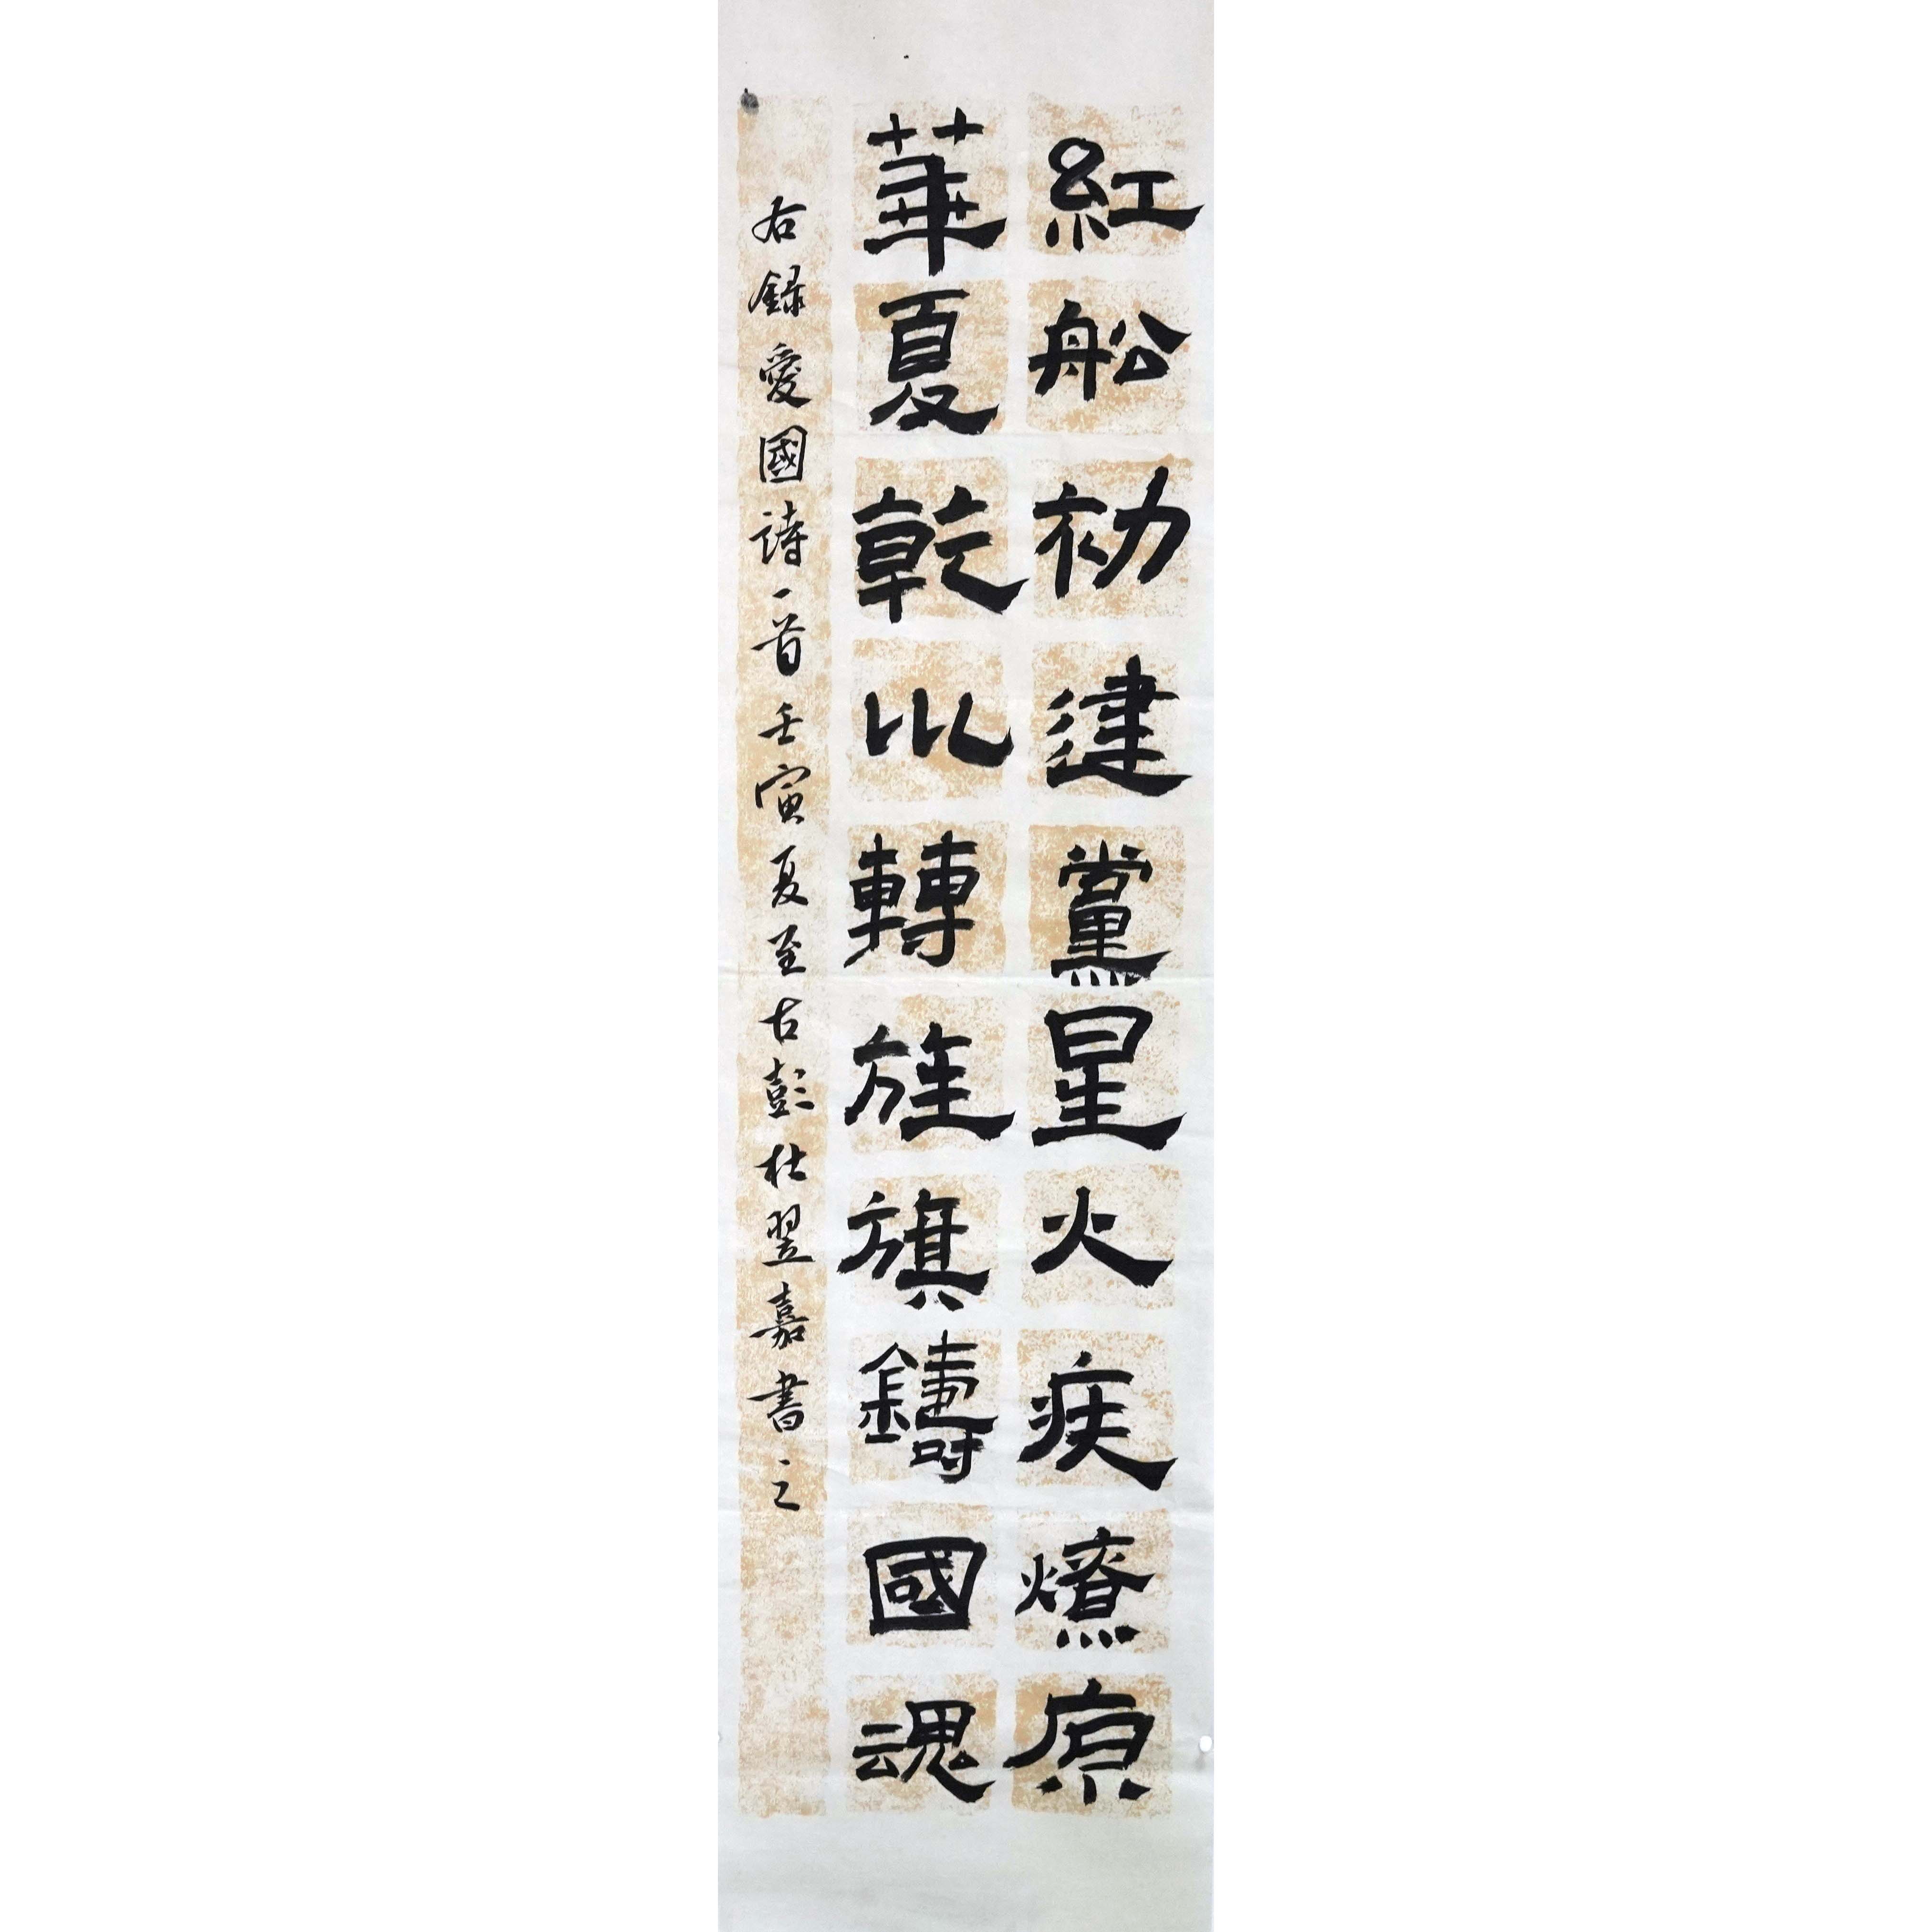 紅船初建黨星火疾燎原
華夏乾巛轉旌旗鑄國魂
右録愛國詩一首壬寅夏至古彭杜翌嘉書之